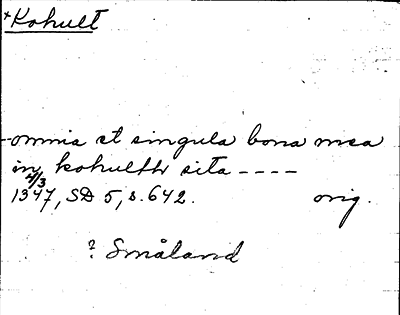 +Kohult
-omnia et singula bona mea
in kohulth sita ----
4/3
1347, SD 5, s. 642. orig.
? Småland